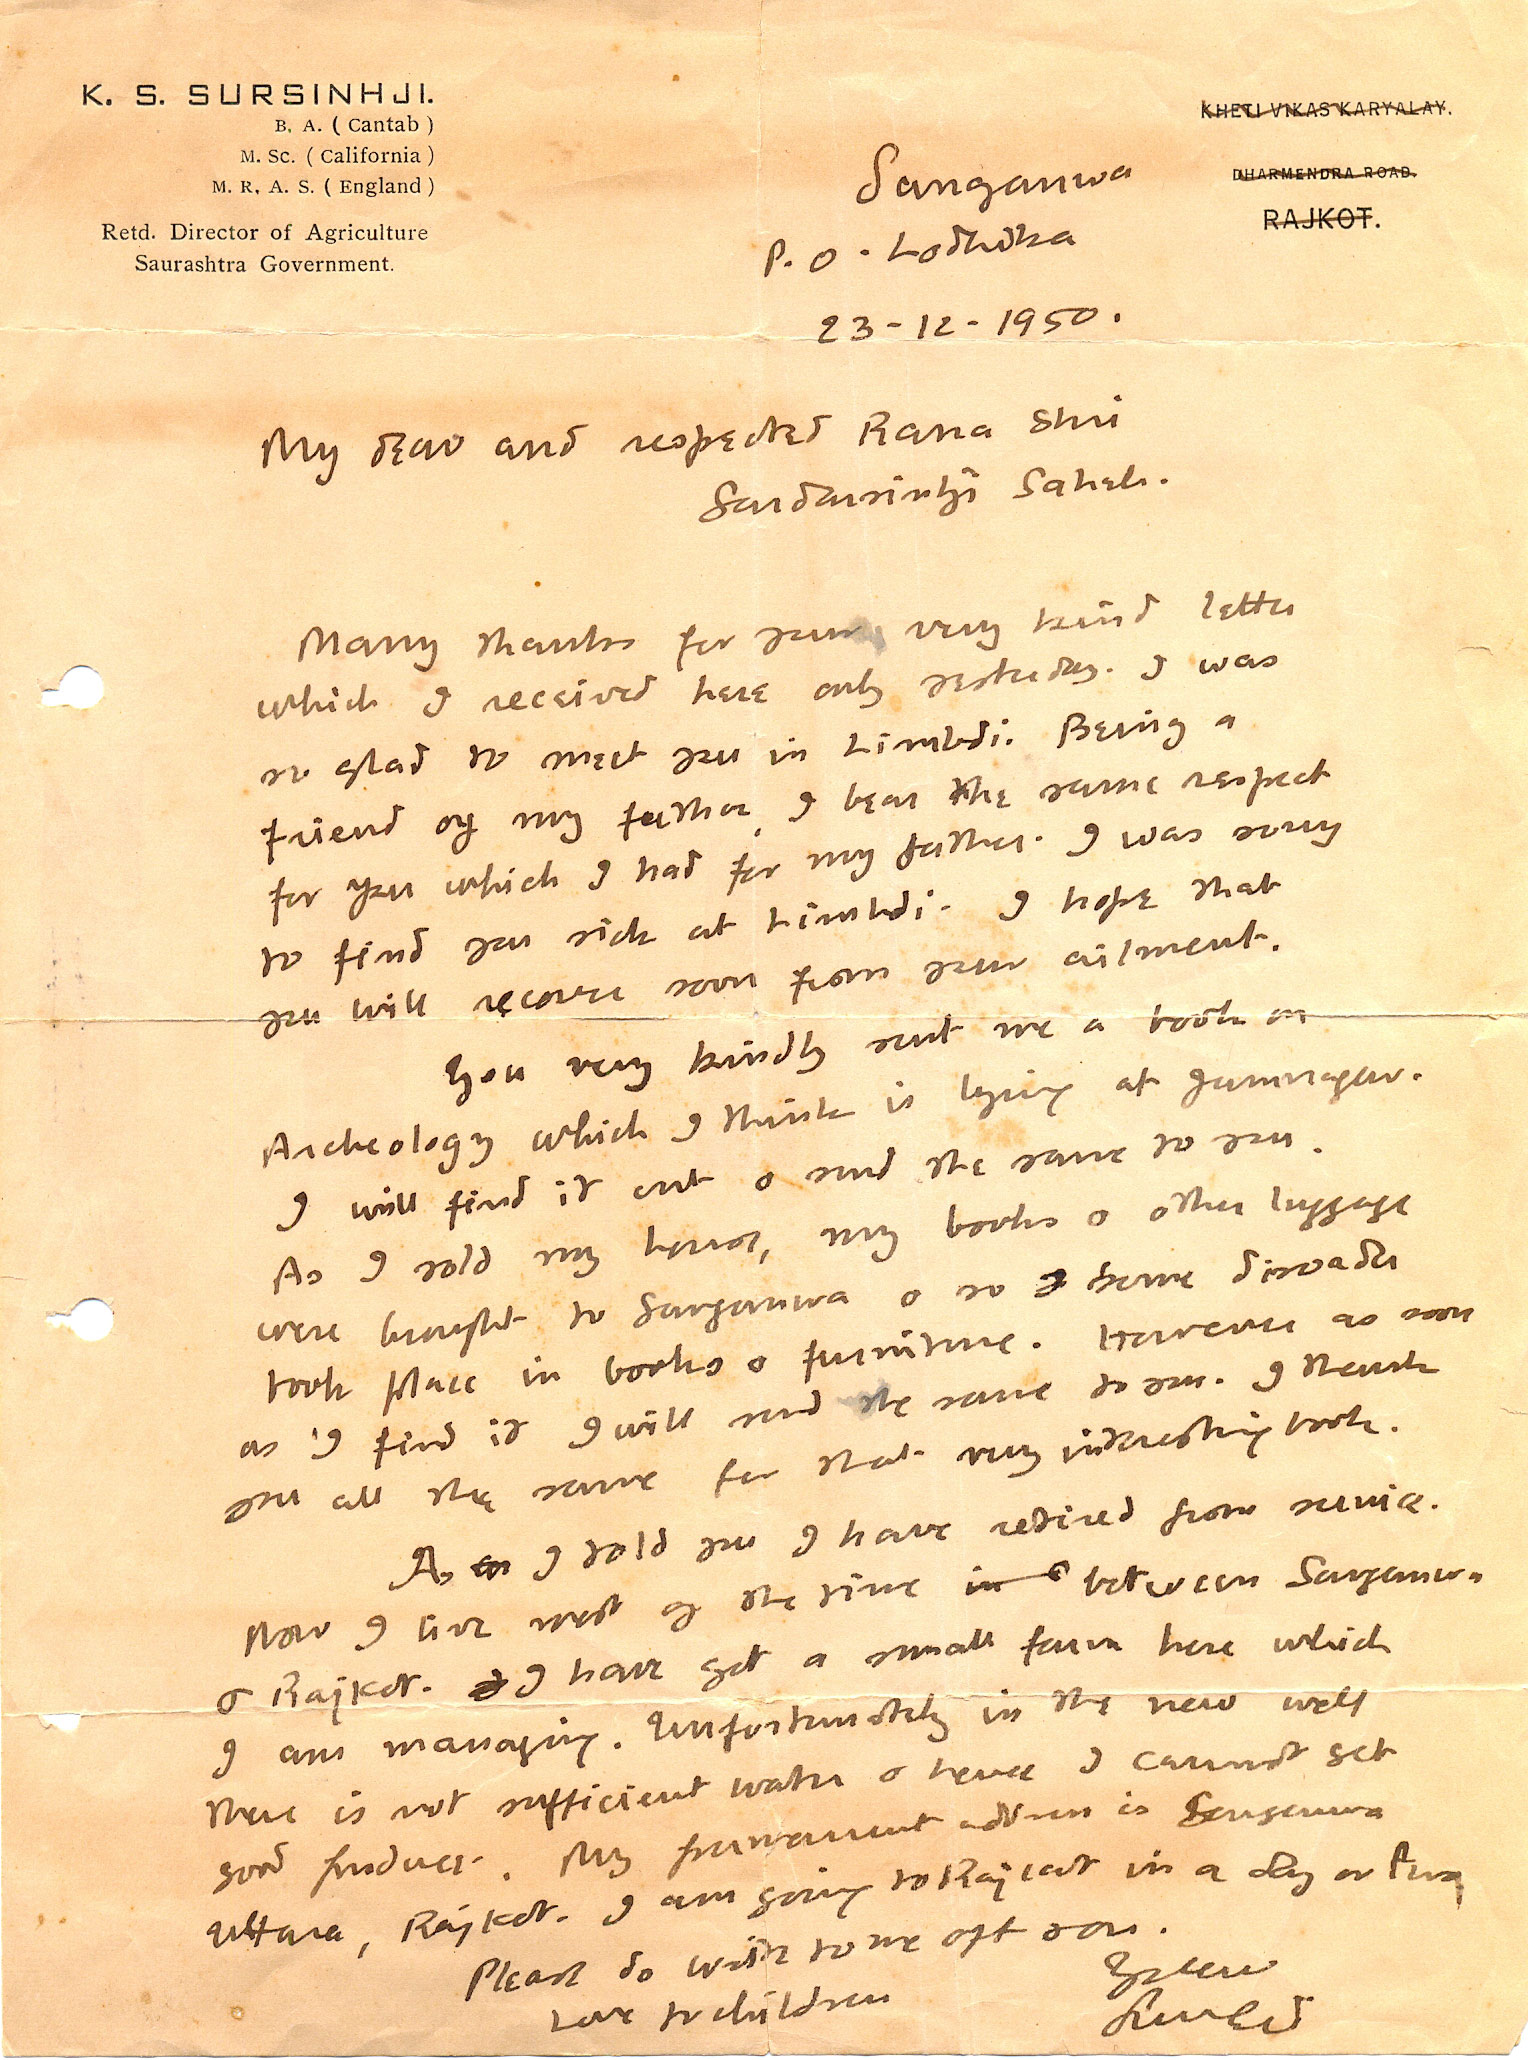 K. S. SURSINHJI.
B. A. ( Cantab )
M. Sc. ( California )
M. R. A. S. ( England )
Retd. Director of Agriculture
Saurashtra Government.
KHETI VIKAS KARYALAY.
DHARMENDRA ROAD.
RAJKOT.
Sanganwa
P. O. Lodhika
23-12-1950.
My dear and respected Rana Shri
Sardarsinhji Saheb.
Many thanks for your very kind letter
which I received here only yesterday. I was
so glad to meet you in Limbdi. Being a
friend of my father, I bear the same respect
for you which I had for my father. I was sorry
to find you sick at Limbdi. I hope that
you will recover soon from your ailment.
You very kindly sent me a book on
Archeology which I think is lying at Jamnagar.
I will find it out & send the same to you.
As I sold my house, my books & other luggage
were brought to Sanganwa & so some disorder
took place in books & furniture. However as soon
as I find it I will send the same to you. I thank
you all the same for that very interesting book.
As I told you I have retired from service.
Now I live most of the time in between Sanganwa
& Rajkot. I have got a small farm here which
I am managing. Unfortunately in the new well
there is not sufficient water & hence I cannot get
good produce. My permanent address is Sanganwa
Uttara, Rajkot. I am going to Rajkot in a day or two
Please do write to me oft & on.
Love to children
Yours